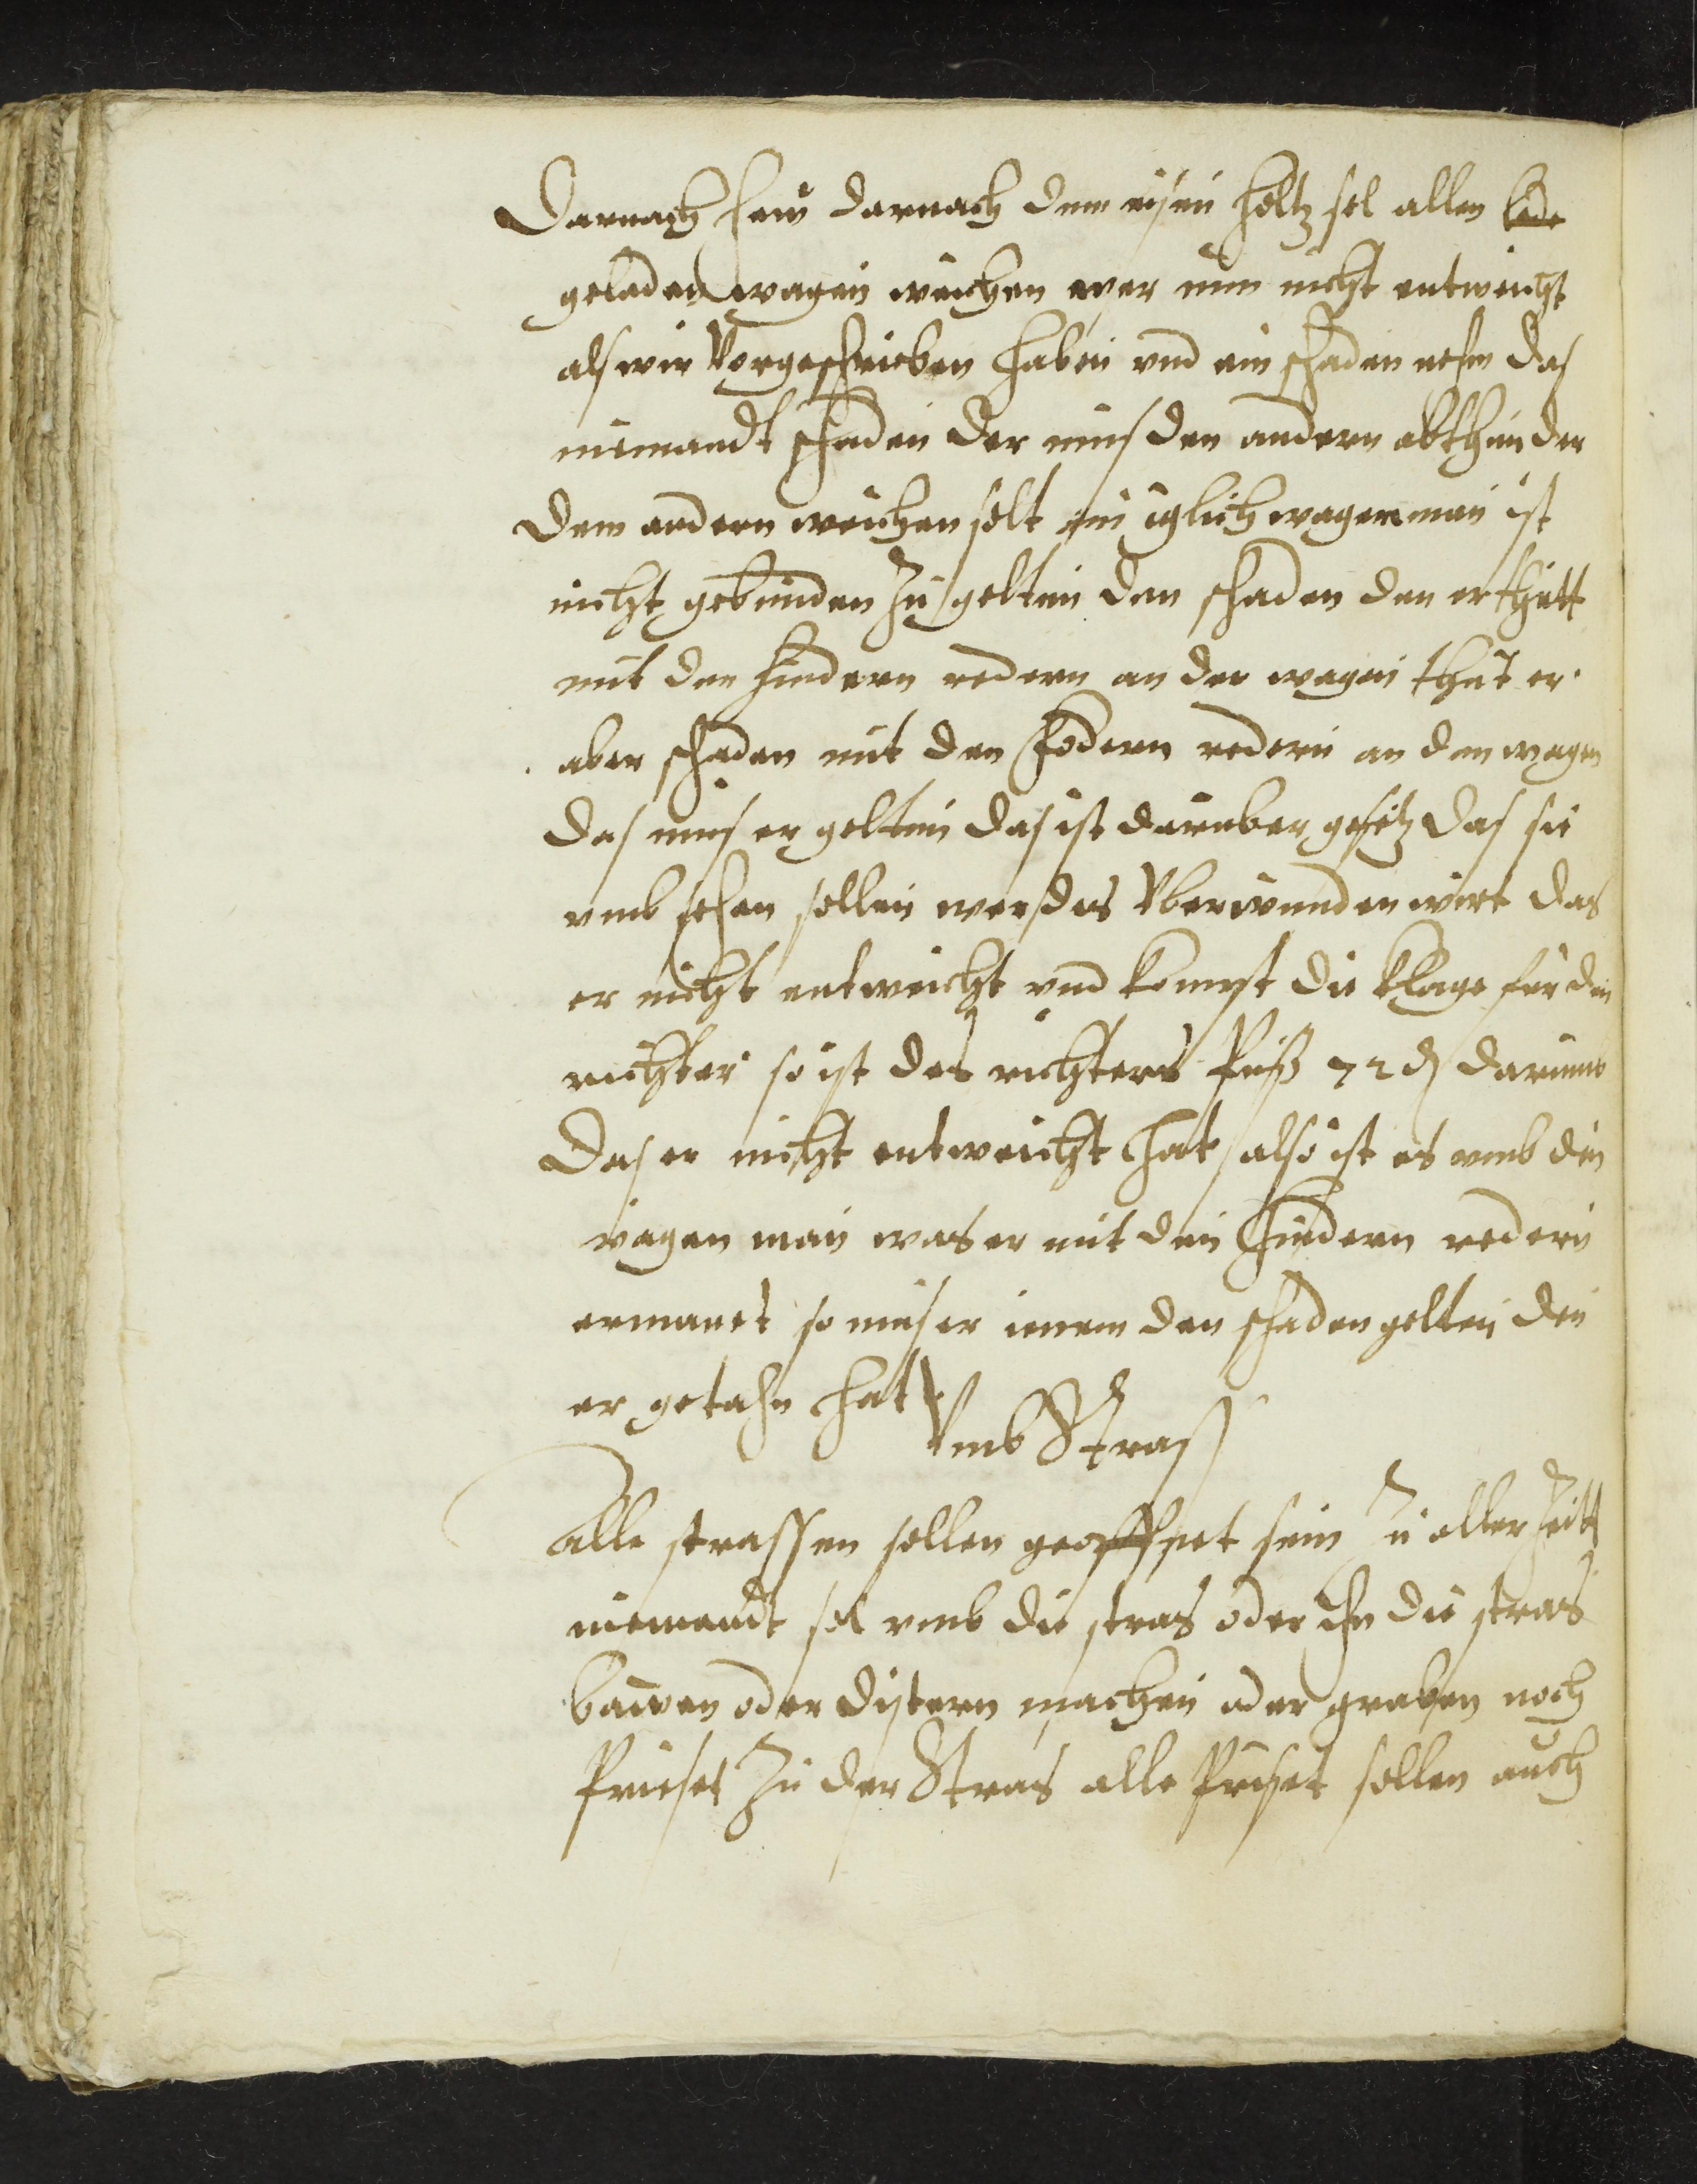 Darnach hew darnach dem eysen holtz sol allen lade
geladen wagen weichen wer nun nicht entweicht
als wir Vorgeschrieben haben vnd ein schaden nehm das
niemandt schaden der mus den andern abthun der
dem andern weichen solt ein iglich wagenman ist
nicht gebunden zu gelten den schaden den er thutt
mit den hindern redern an der wagen thut er
aber schaden mit den fodern redern an dem wagen
das mus er gelten das ist darueber gesetz das sie
vmb sehen sollen wer des Vberwunden wirt das
er nicht entweicht vnd kompt die klage fur den
richter so ist des richters Pus 72 d darumb
Das er nicht entweicht hat also ist es vmb den
wagen man was er mit den hindern redern
so mus er ienem den schaden gelten den
er getahn hat
Vmb Strass
Alle strassen sollen geoffnet sein zu aller zeitt
niemandt sol vmb die stras oder an die stras
bawen oder machen oder graben noch
Prifet zu der Stras alle Prifet sollen auch